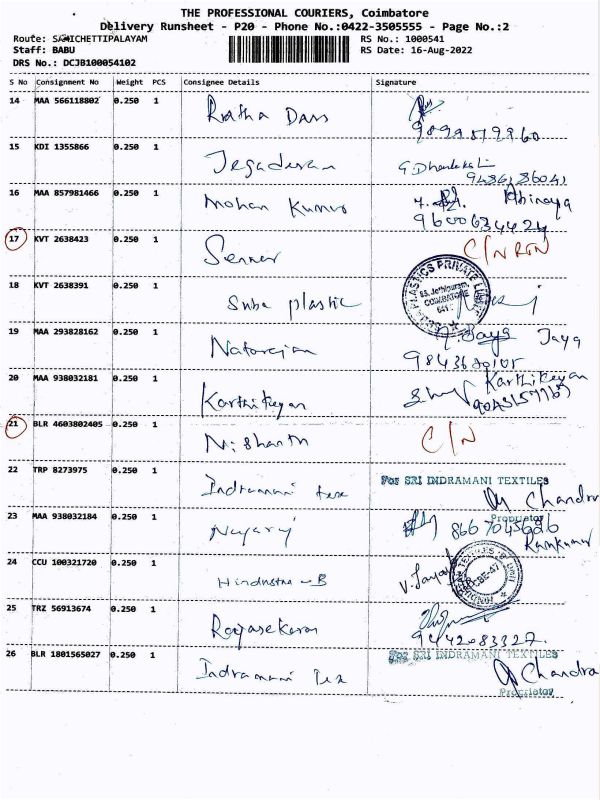 THE PROFESSIONAL COURIERS, Coimbatore
Delivery Runsheet - P20 - Phone No.:0422-3505555 - Page No.:2
Route: SANICHETTIPALAYAM RS No.: 1000541
Staff: BABU RS Date: 16-Aug-2022
DRS No.: DCJB100054102
S No Consignment No Weight PCS Consignee Details Signature
14 MAA 566118802 0.250 1 Ratha Dans
15 KDI 1355866 0.250 1 Jegadesan
16 MAA 857981466 0.250 1 Mohan Kumar Abinaya
9600634424
17 KVT 2638423 0.250 1 C/N RTN
18 KVT 2638391 0.250 1 Suba plastic
PLASTICS PRIVATE
COIMBATORE
19 MAA 293828162 0.250 1 Natarajan Jaya Jaya
20 MAA 938032181 0.250 1 Karthikeyan Karthikeyan
21 BLR 4603802405 0.250 1 Nishanth C/N
22 TRP 8273975 0.250 1 Indramani tex For SRI INDRAMANI TEXTILES
Chandra
Proprietor
23 MAA 938032184 0.250 1 Nagaraj
Ramkumar
24 CCU 100321720 0.250 1 Hindustan - B
25 TRZ 56913674 0.250 1 Rajasekaran
9442083327.
26 BLR 1801565027 0.250 1 Indramani Tex For SRI INDRAMANI TEXTILES
Chandra
Proprietor